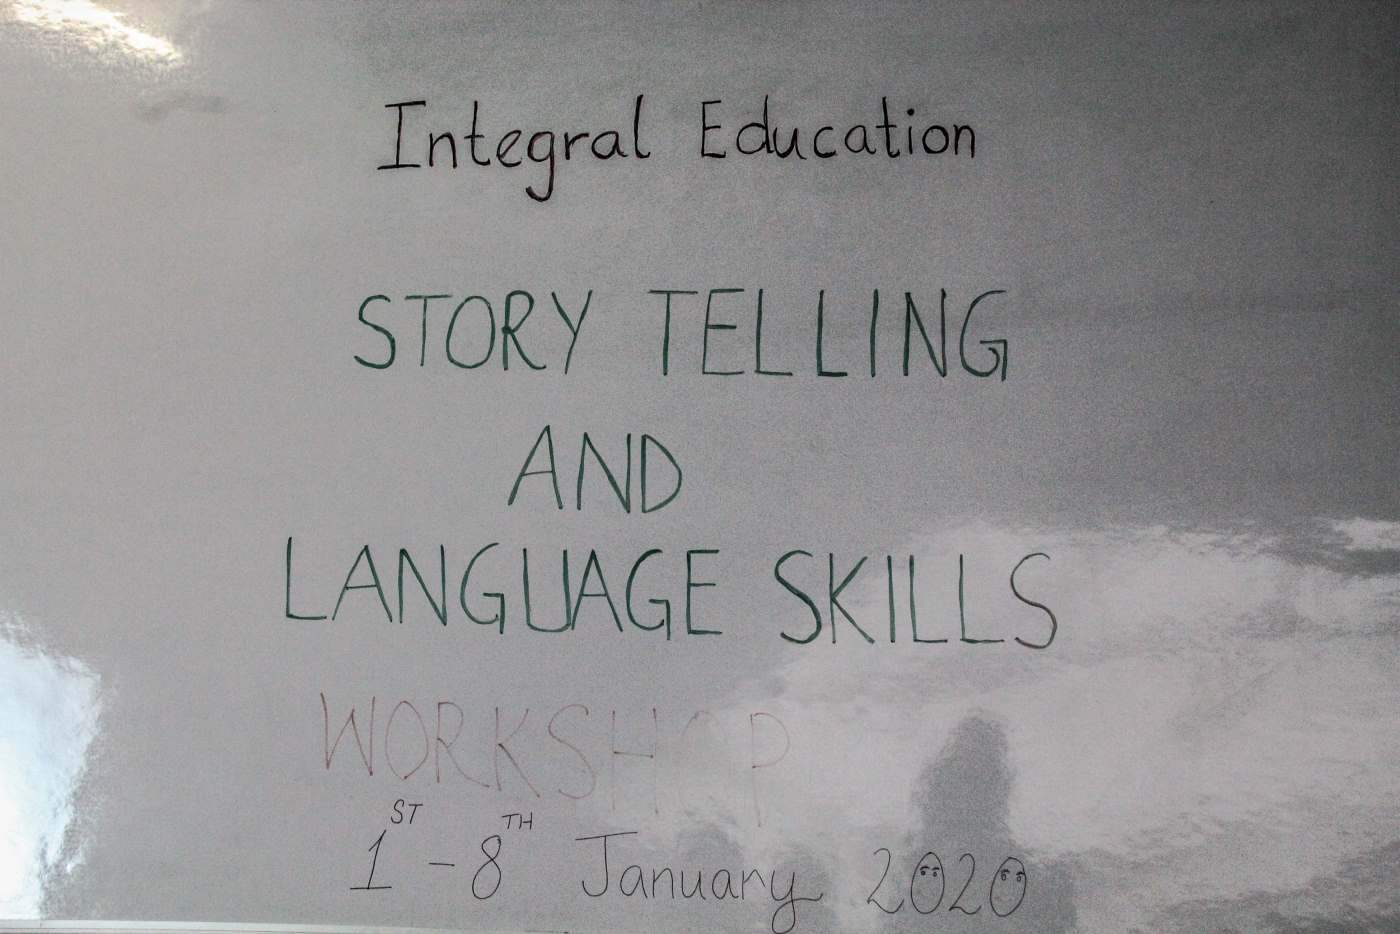 Integral Education
STORY TELLING
AND
LANGUAGE SKILLS
WORKSHOP
1ST - 8TH January 2020